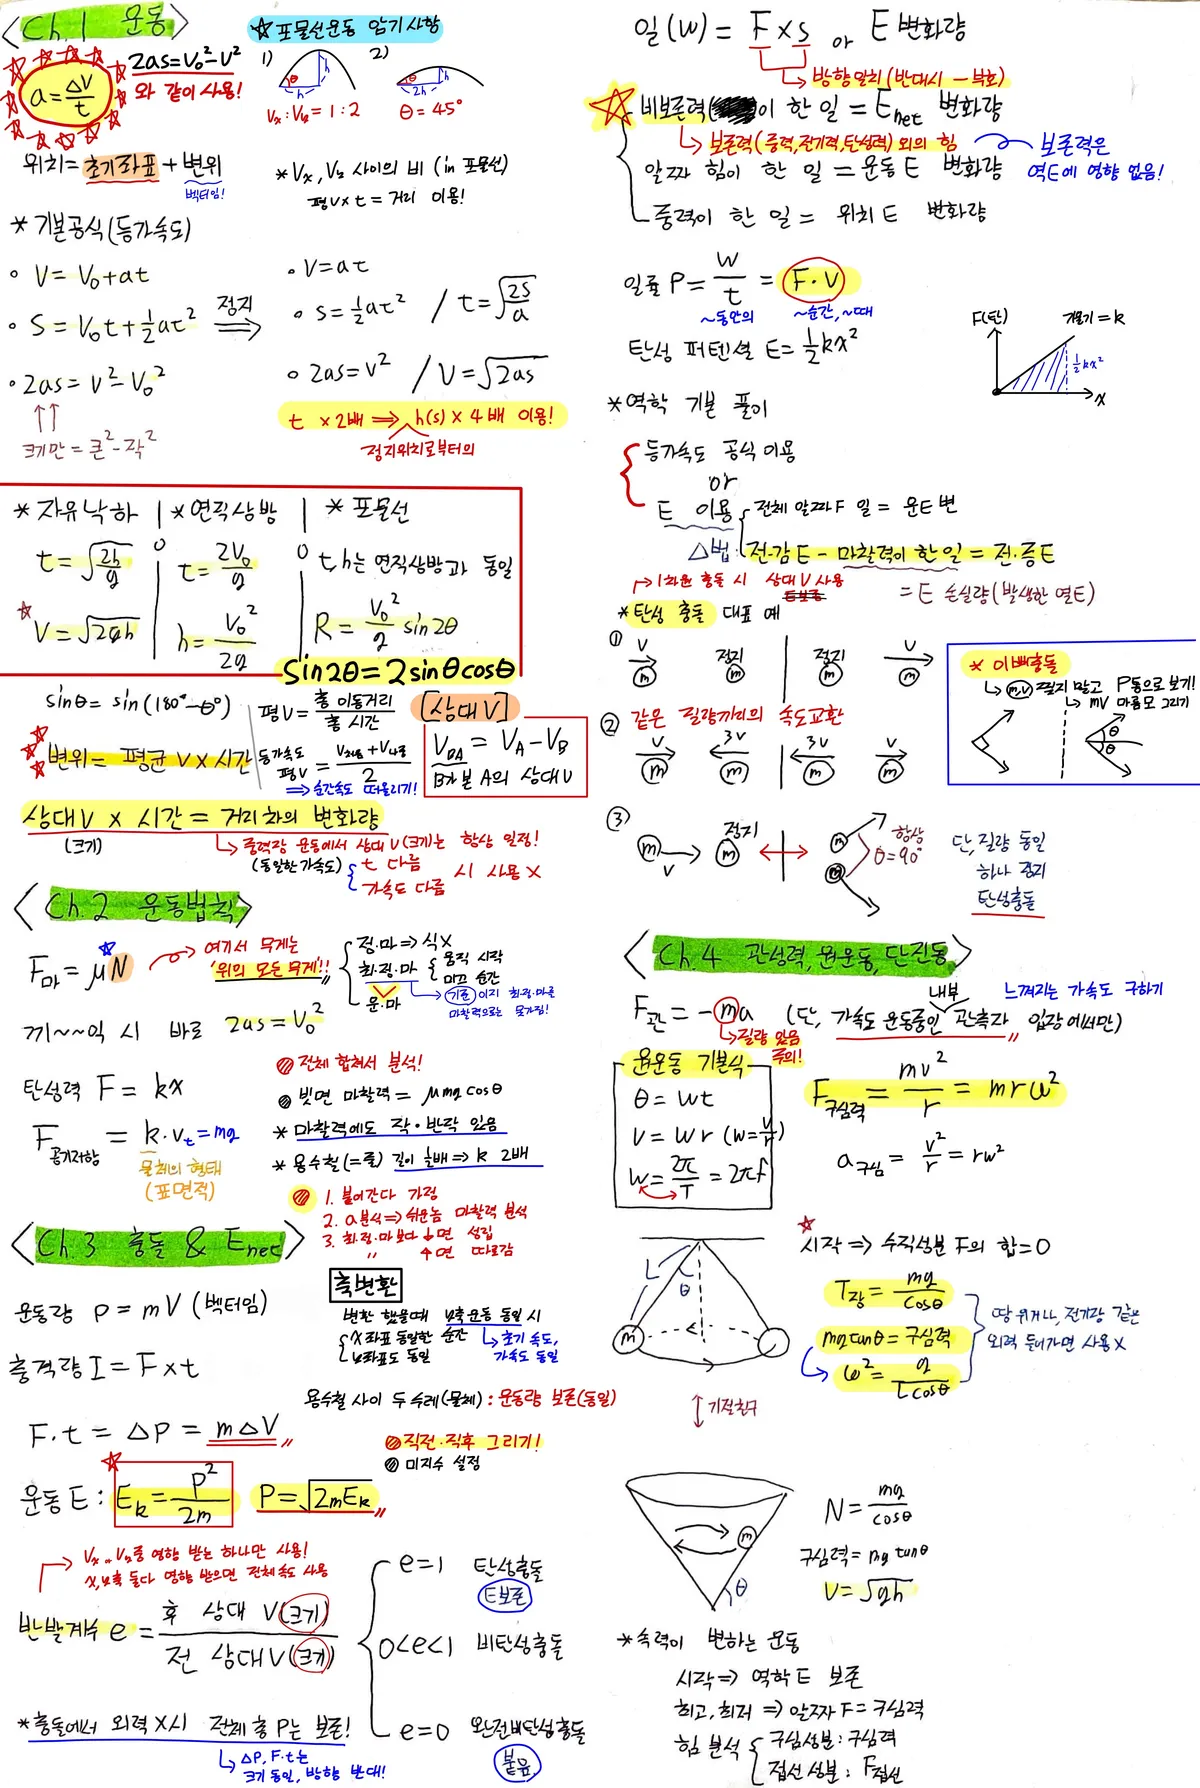 <Ch.1 운동>
a = ΔV/t
2as = V₀² - V²
와 같이 사용!
☆포물선운동 암기사항
1) θ h
Vx : Vy = 1 : 2
2) θ h 2h
θ = 45°
위치 = 초기좌표 + 변위
벡터임!
* Vx, Vy 사이의 비 (in 포물선)
평V × t = 거리 이용!
* 기본공식(등가속도)
• V = V₀ + at
• S = V₀t + ½at²
정지 ⇒
• 2as = V² - V₀²
↑↑
크기만 = 큰² - 작²
• V = at
• S = ½at² / t = √(2S/a)
• 2as = V² / V = √2as
t × 2배 ⇒ h(s) × 4배 이용!
정지위치로부터의
* 자유낙하 | * 연직상방 | * 포물선
t = √(2h/g)
☆ V = √2gh
t = 2V₀/g
h = V₀²/2g
t, h는 연직상방과 동일
R = V₀²/g sin2θ
sin2θ = 2sinθcosθ
sinθ = sin(180° - θ°)
평V = 총 이동거리/총 시간
☆☆☆ 변위 = 평균 V × 시간
등가속도 평V = V처음 + V나중/2
⇒ 순간속도 떠올리기!
[상대V]
V_BA = V_A - V_B
B가 본 A의 상대V
상대V × 시간 = 거리차의 변화량
(크기)
↳ 중력장 운동에서 상대V(크기)는 항상 일정!
(동일한 가속도)
t 다름
가속도 다름
시 사용 X
<Ch.2 운동법칙>
F마 = μN
여기서 무게는
'위의 모든 무게'!!
정·마 ⇒ 식X
최·정·마 움직 시작
미끄 순간
운·마
기준이지 최·정·마로
마찰력으로는 못가짐!
끼~~익 시 바로 2as = V₀²
탄성력 F = kx
F공기저항 = k·Vt = mg
물체의 형태
(표면적)
전체 합쳐서 분석!
빗면 마찰력 = μmg cosθ
* 마찰력에도 작·반작 있음
* 용수철(=줄) 길이 ½배 ⇒ k 2배
1. 붙어간다 가정
2. a분석 ⇒ 쉬운놈 마찰력 분석
3. 최·정·마보다 ↓면 성립
〃 ↑면 따로감
<Ch.3 충돌 & Enet>
운동량 P = mV (벡터임)
충격량 I = F × t
F·t = ΔP = mΔV
축변환
변환 했을때 y축운동 동일 시
x좌표 동일한 순간
y좌표도 동일
↳ 초기 속도, 가속도 동일
용수철 사이 두 수레(물체) : 운동량 보존(동일)
직전·직후 그리기!
미지수 설정
운동 E : Ek = P²/2m P = √2mEk
Vx, Vy중 영향 받는 하나만 사용!
x,y축 둘다 영향 받으면 전체속도 사용
반발계수 e = 후 상대 V(크기)/전 상대V(크기)
e = 1 탄성충돌
E보존
0 < e < 1 비탄성충돌
e = 0 완전비탄성충돌
붙음
* 충돌에서 외력 X시 전체 총 P는 보존!
↳ ΔP, F·t는
크기 동일, 방향 반대!
일(W) = F × s or E 변화량
방향일치(반대시 - 부호)
☆ 비보존력( 이 한 일 = Enet 변화량
↳ 보존력(중력,전기력,탄성력) 외의 힘
보존력은
역E에 영향 없음!
알짜 힘이 한 일 = 운동 E 변화량
중력이 한 일 = 위치 E 변화량
일률 P = W/t = F·V
~동안의 ~순간, ~때
탄성 퍼텐셜 E = ½kx²
F(탄) 기울기 = k
½kx²
x
* 역학 기본 풀이
등가속도 공식 이용
or
E 이용
전체 알짜F 일 = 운E 변
△법: 전·감E - 마찰력이 한 일 = 전·증E
= E 손실량(발생한 열E)
→ 1차원 충돌 시 상대V사용
* 탄성 충돌 대표 예
① V m 정지 m | 정지 m V m
② 같은 질량끼리의 속도교환
V m 3V m | 3V m V m
③ m V 정지 m ↔ m m 항상 θ = 90°
단, 질량 동일
하나 정지
탄성충돌
* 이빠충돌
m,v 정지 말고 P동으로 보기!
mV 마름모 그리기
θ θ
<Ch.4 관성력, 원운동, 단진동>
F관 = -ma (단, 가속도 운동중인 관측자 입장에서만)
내부
느껴지는 가속도 구하기
질량 있음 주의!
원운동 기본식
θ = wt
V = wr (w = V/r)
w = 2π/T = 2πf
F구심력 = mv²/r = mrω²
a구심 = V²/r = rω²
L θ m
☆ 시작 ⇒ 수직성분 F의 합 = 0
T장 = mg/cosθ
mg tanθ = 구심력
ω² = g/Lcosθ
땅 위거나, 전기장 같은
외력 들어가면 사용 X
↕ 기절친구
m θ
N = mg/cosθ
구심력 = mg tanθ
V = √gh
* 속력이 변하는 운동
시작 ⇒ 역학 E 보존
최고, 최저 ⇒ 알짜F = 구심력
힘 분석 구심성분 : 구심력
접선성분 : F접선